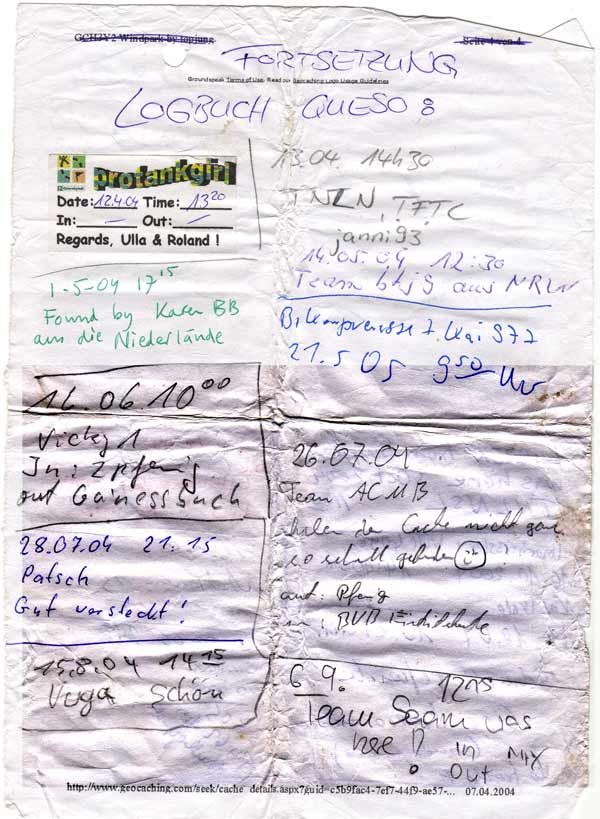 GCH3Y2 Windpark by topjung
Seite 4 von 4
FORTSETZUNG
Groundspeak Terms of Use. Read our Geocaching Logo Usage Guidelines
LOGBUCH QUESO:
protankgirl
Date: 12.4.04 Time: 13 20
In: Out:
Regards, Ulla & Roland !
1-5-04 17 15
Found by Karen BB
aus die Niederlände
16.06 10 00
Vicky 1
In: 2 pfenig
out Gänessbuch
28.07.04 21:15
Patsch
Gut versteckt!
15.8.04 14 15
Schön
13.04. 14h30
TNLN, TFTC
janni93
14.05.04 12:30
Team bkj9 aus NRW
21.5 05 9 50 Uhr
26.07.04
Team ACMB
haben den Cache nicht ganz
so schnell gefunden
out: Pfenig
in: BVB
6.9. 12 15
Team Seam was
here!?
in
out
http://www.geocaching.com/seek/cache_details.aspx?guid=c5b9fac4-7ef7-44f9-ae57-... 07.04.2004